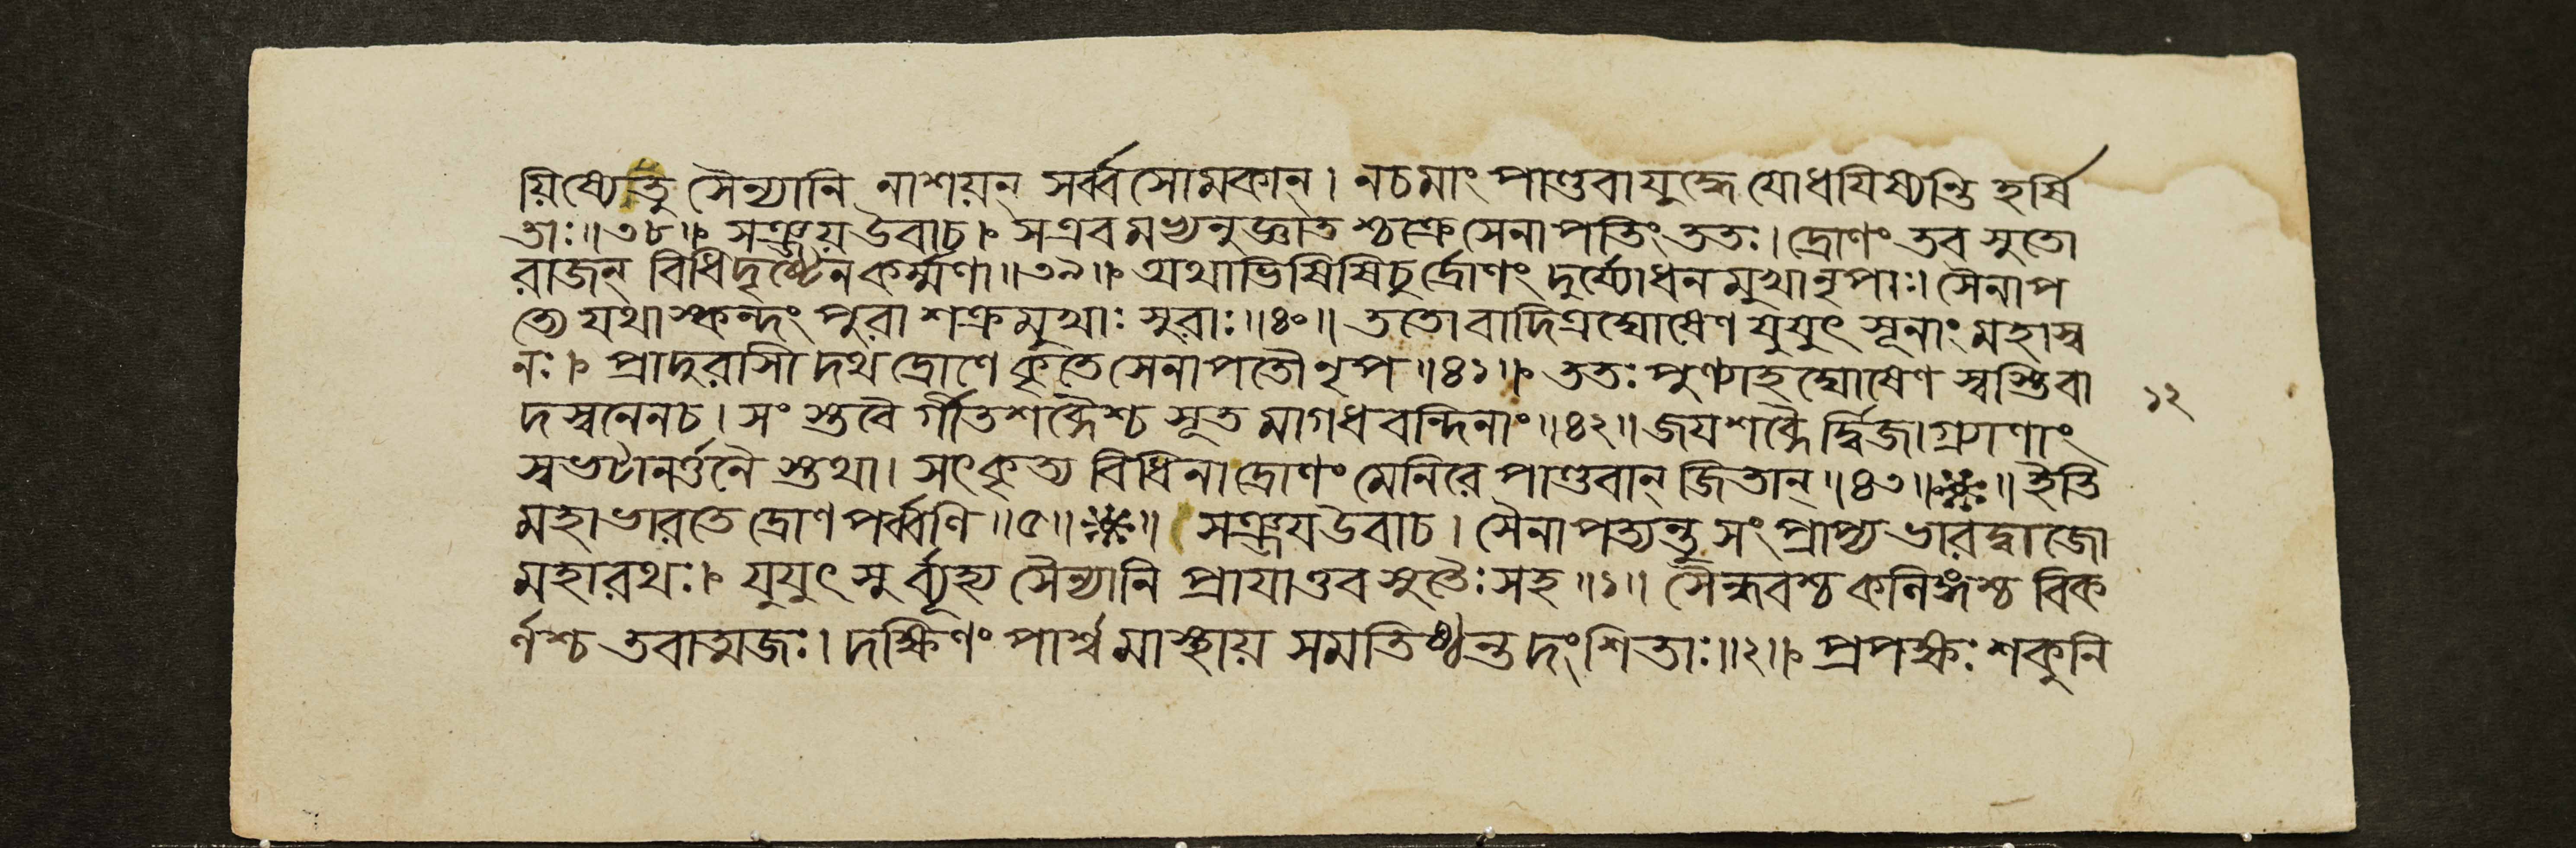 য়িষ্যেতু সৈন্যানি নাশয়ন্ সর্ব্বসোমকান্। নচমাং পাণ্ডবাযুদ্ধে যোধযিষ্যন্তি হর্ষি
তাঃ॥৩৮॥ সঞ্জয়উবাচ। সএবমভ্যনুজ্ঞাতশ্চক্রেসেনাপতিং ততঃ। দ্রোণং তব সুতো
রাজন্ বিধিদৃষ্টেনকর্ম্মণা॥৩৯॥ অথাভিষিষিচুর্দ্রোণং দুর্য্যোধনমুখানৃপাঃ। সৈনাপ
ত্যে যথাস্কন্দং পুরাশক্রমুখাঃ সুরাঃ॥৪০॥ ততোবাদিত্রঘোষেণ যুযুৎসূনাং মহাস্ব
নঃ। প্রাদুরাসীদথদ্রোণে কৃতেসেনাপতৌনৃপ॥৪১॥ ততঃ পুণ্যাহঘোষেণ স্বস্তিবা
দস্বনেনচ। সংস্তবৈর্গীতশব্দৈশ্চ সূতমাগধবন্দিনাং॥৪২॥ জযশব্দৈর্দ্বিজাগ্রগণাং
স্বভটানর্ত্তনৈস্তথা। সৎকৃত্য বিধিনাদ্রোণং মেনিরে পাণ্ডবান্ জিতান্॥৪৩॥ ॥ইতি
মহাভারতে দ্রোণপর্ব্বণি॥৫॥ ॥ সঞ্জযউবাচ। সৈনাপত্যন্তু সংপ্রাপ্য ভারদ্বাজো
মহারথঃ। যুযুৎসুর্ব্যূহ্য সৈন্যানি প্রাযাত্তবসুতৈঃসহ॥১॥ সৈন্ধবশ্চ কলিঙ্গশ্চ বিক
র্ণশ্চ তবাত্মজঃ। দক্ষিণং পার্শ্বমাস্থায় সমতিষ্ঠন্ত দংশিতাঃ॥২॥ প্রপক্ষঃ শকুনি
১২